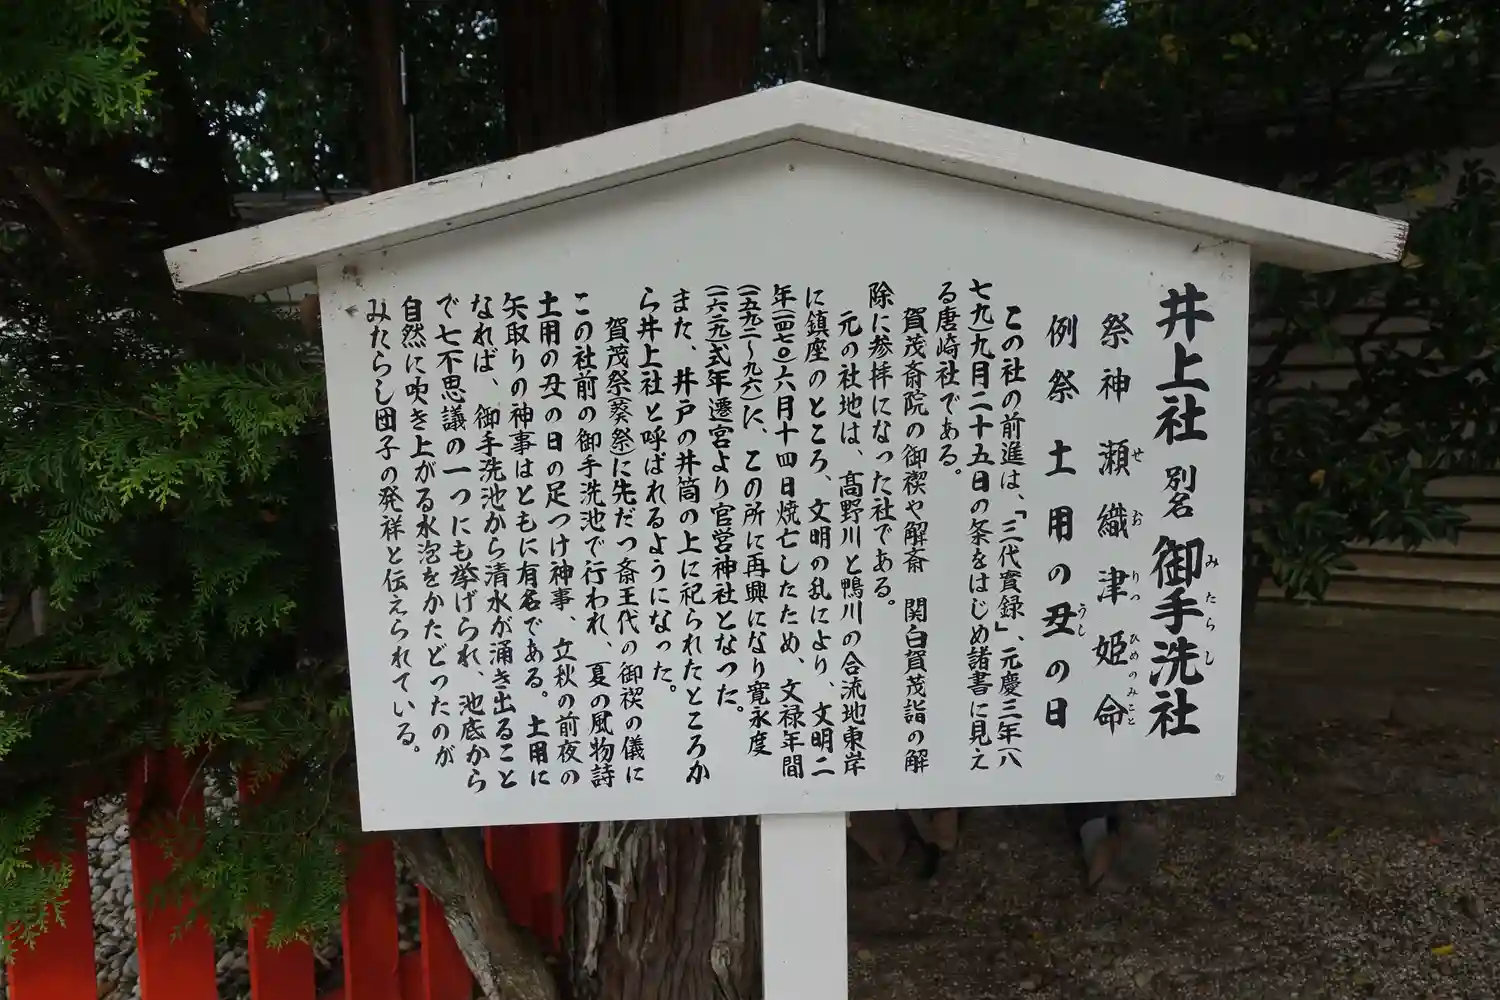 井上社 別名 御手洗社
みたらし
祭神 瀬織津姫命
せおりつひめのみこと
例祭 土用の丑の日
うし
この社の前進は、「三代實録」、元慶三年(八
七九)九月二十五日の条をはじめ諸書に見え
る唐崎社である。
賀茂斎院の御禊や解斎 関白賀茂詣の解
除に参拝になった社である。
元の社地は、高野川と鴨川の合流地東岸
に鎮座のところ、文明の乱により、文明二
年(一四七〇)六月十四日焼亡したため、文禄年間
(一五九二〜九六)に、この所に再興になり寛永度
(一六二九)式年遷宮より官営神社となった。
また、井戸の井筒の上に祀られたところか
ら井上社と呼ばれるようになった。
賀茂祭(葵祭)に先だつ斎王代の御禊の儀に
この社前の御手洗池で行われ、夏の風物詩
土用の丑の日の足つけ神事、立秋の前夜の
矢取りの神事はともに有名である。土用に
なれば、御手洗池から清水が涌き出ること
で七不思議の一つにも挙げられ、池底から
自然に吹き上がる水泡をかたどったのが
みたらし団子の発祥と伝えられている。